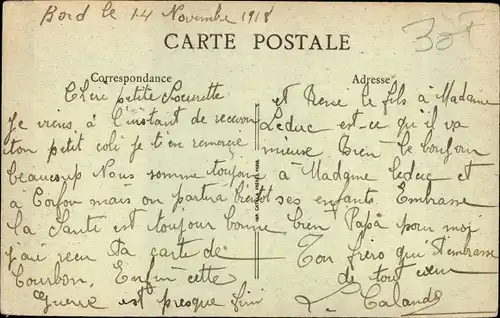 Bord le 14 Novembre 1918
30F
CARTE POSTALE
Correspondance
Adresse
Chère petite Soeurette
Je viens à l'instant de recevoir
ton petit coli je t'en remercie
beaucoup Nous somme toujours
à Corfou mais on partira bientôt
la Santé est toujour bonne
j'ai recu ta carte de
Courbon. Enfin cette
Guerre est presque fini
et René le fils à Madame
Leduc est-ce qu'il va
mieuse. Bien le bonjour
à Madame Leduc et
ses enfants. Embrasse
bien Papa pour moi
Ton frero qui t'embrasse
de tout cœur